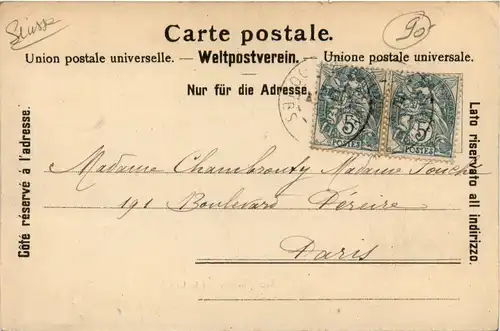 Suisse
90
Carte postale.
Union postale universelle. — Weltpostverein. — Unione postale universale.
Nur für die Adresse.
Côté réservé à l'adresse.
Lato riservato all indirizzo.
5 5
POSTES POSTES
Madame Chambrouty Madame Fouché
191 Boulevard Péreire
Paris